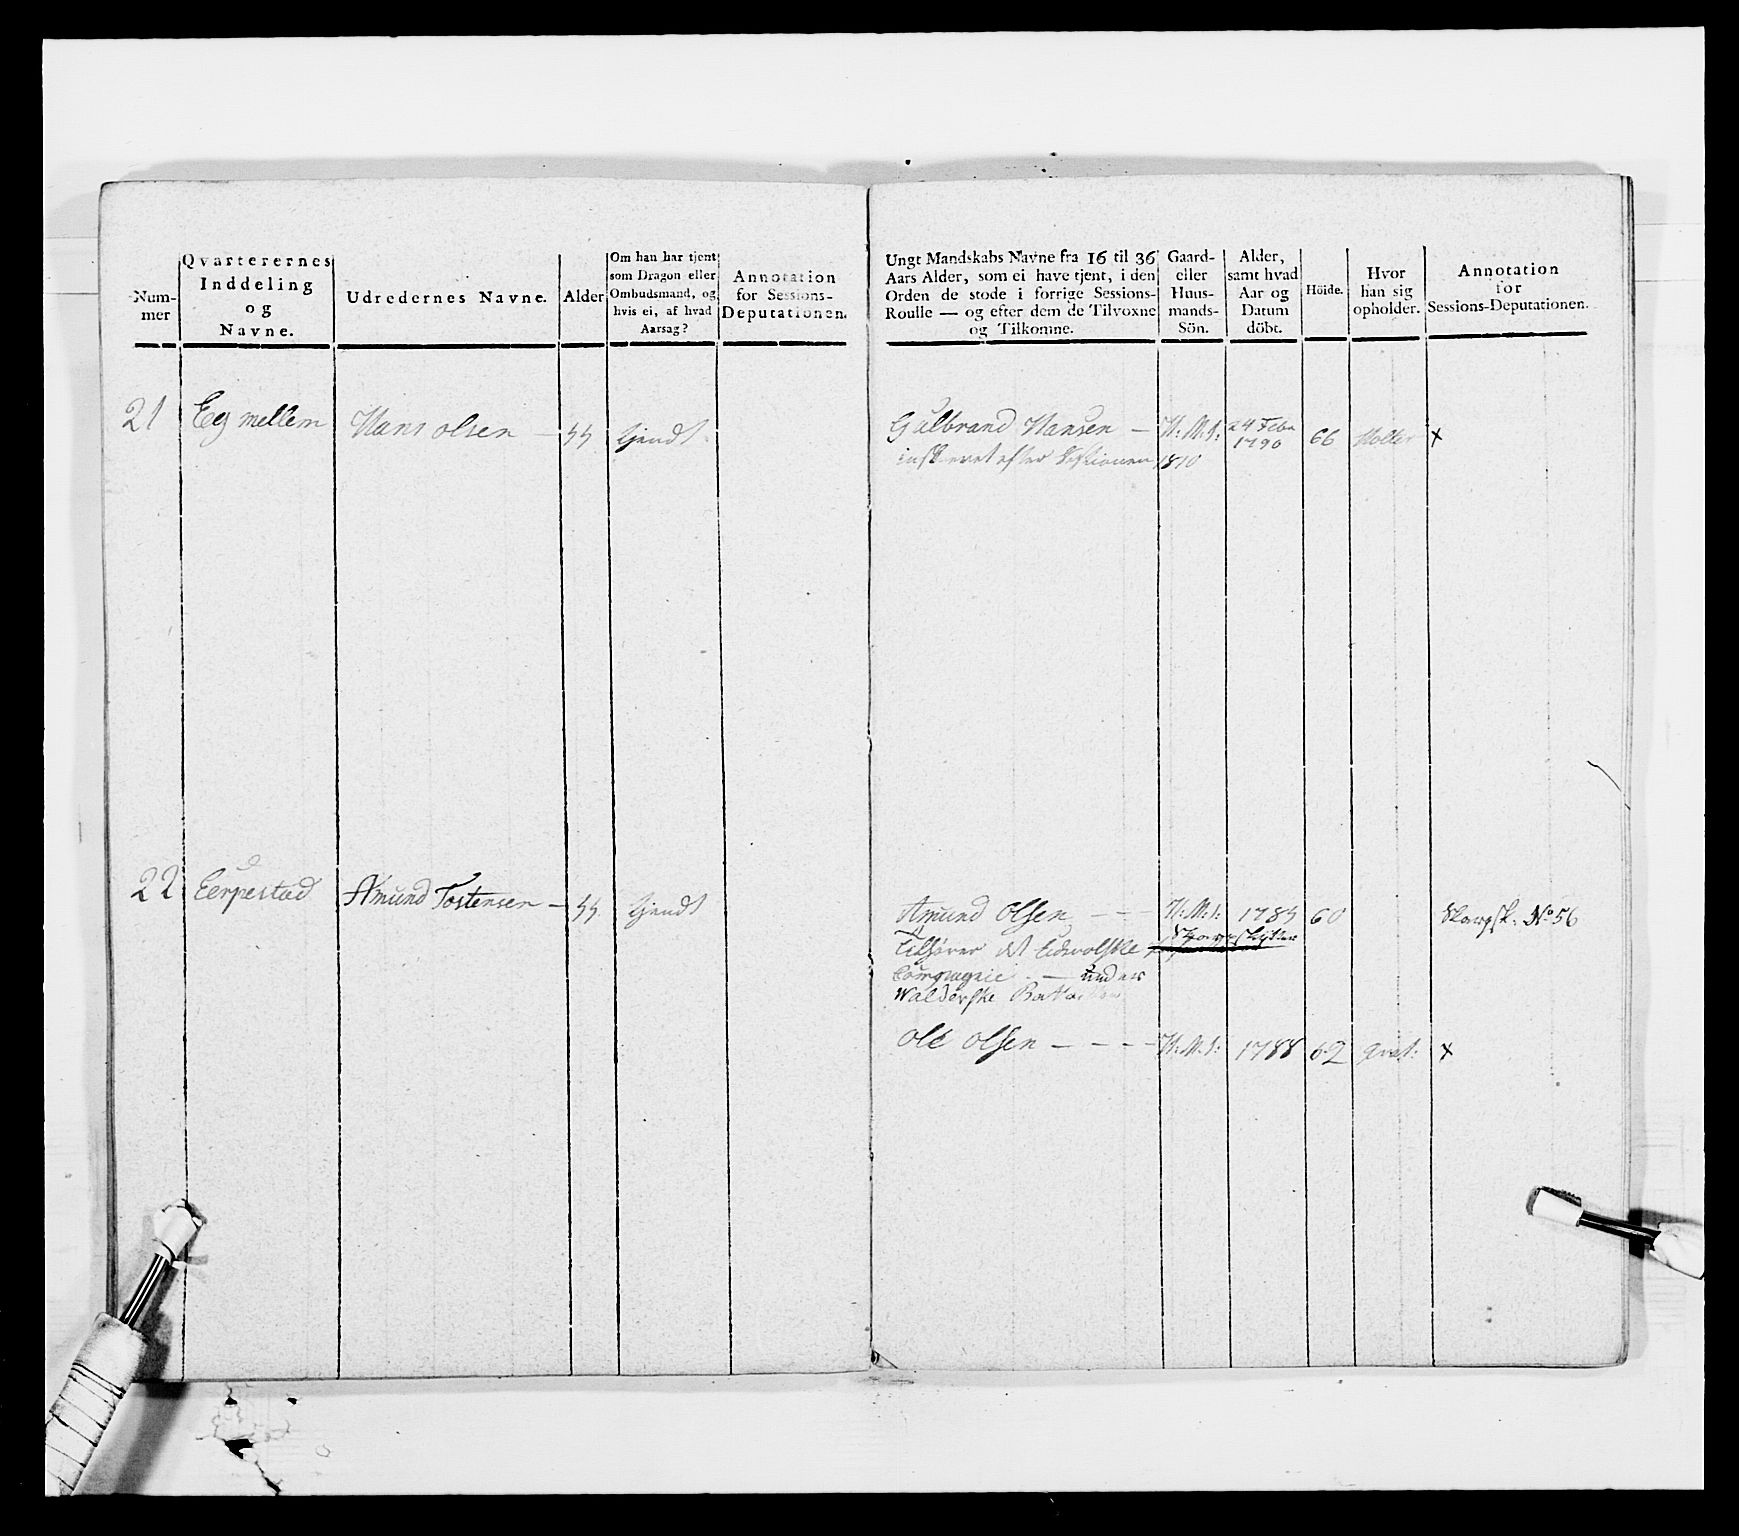 Num-
mer
Qvarterernes
Inddeling
og
Navne.
Udredernes Navne.
Alder
Om han har tjent
som Dragon eller
Ombudsmand, og
hvis ei, af hvad
Aarsag?
Annotation
for Sessions-
Deputationen.
21
Eeg mellem
Hans olsen —
tjendt
22
Amund Tostensen —
tjendt
Ungt Mandskabs Navne fra 16 til 36
Aars Alder, som ei have tjent, i den
Orden de stode i forrige Sessions-
Roulle — og efter dem de Tilvoxne
og Tilkomne.
Gaard-
eller
Huus-
mands-
Sön.
Alder,
samt hvad
Aar og
Datum
döbt.
Höide.
Hvor
han sig
opholder.
Annotation
for
Sessions-Deputationen.
Gulbrand Hansen — H: M: S: 24 Febr 1790 66 Holter x
efter Sessionen 1810
Amund Olsen — — H: M: S: 60 Skarpsk: No 56
Tilhører det Eidsvolske
Skarpskytter
Compagnie — under
Walderske
Ole Olsen — — — — H: M: S: 1788 62 x